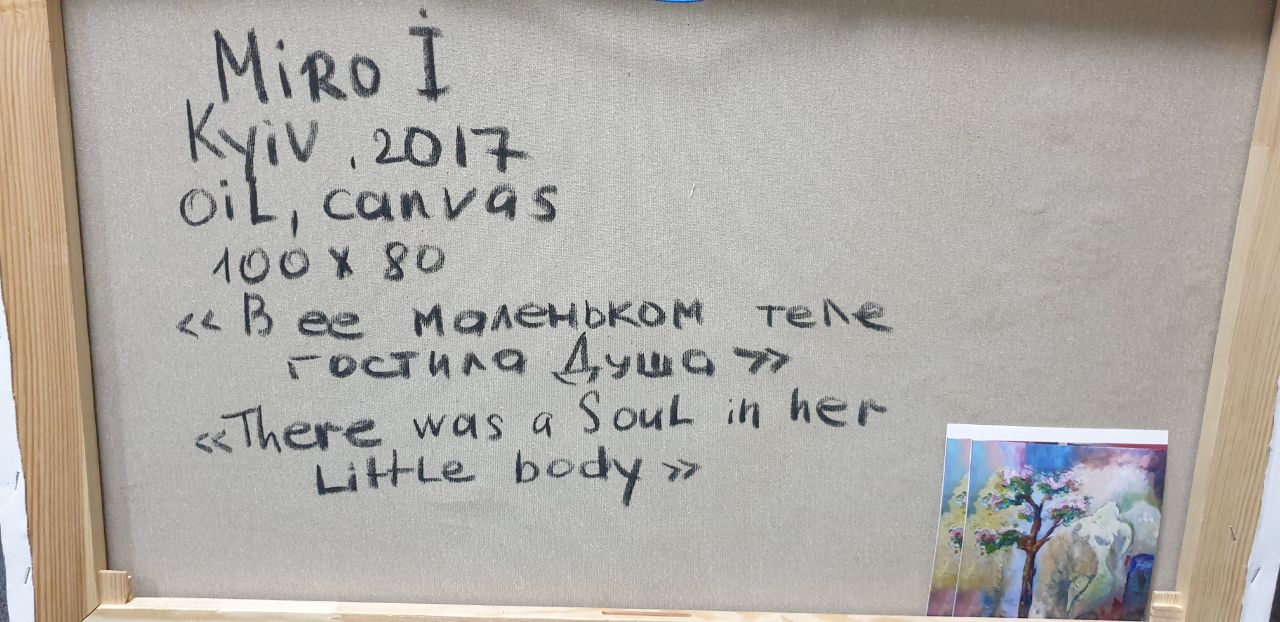 Miro I
Kyiv, 2017
oil, canvas
100 x 80
«В ее маленьком теле
гостила Душа»
«There was a Soul in her
Little body»